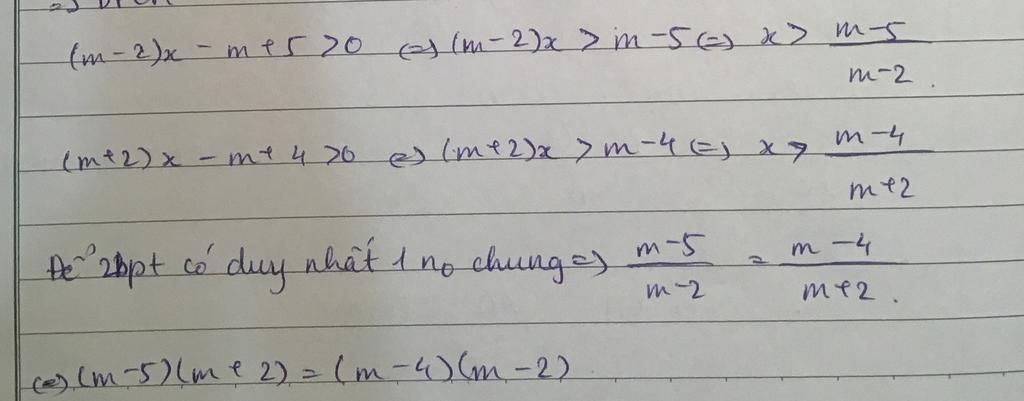 (m-2)x - m + 5 > 0 ⇔ (m-2)x > m-5 ⇔ x > \frac{m-5}{m-2}.
(m+2)x - m + 4 > 0 ⇔ (m+2)x > m-4 ⇔ x > \frac{m-4}{m+2}
Để 2bpt có duy nhất 1 no chung ⇒ \frac{m-5}{m-2} = \frac{m-4}{m+2}.
⇔ (m-5)(m+2) = (m-4)(m-2)